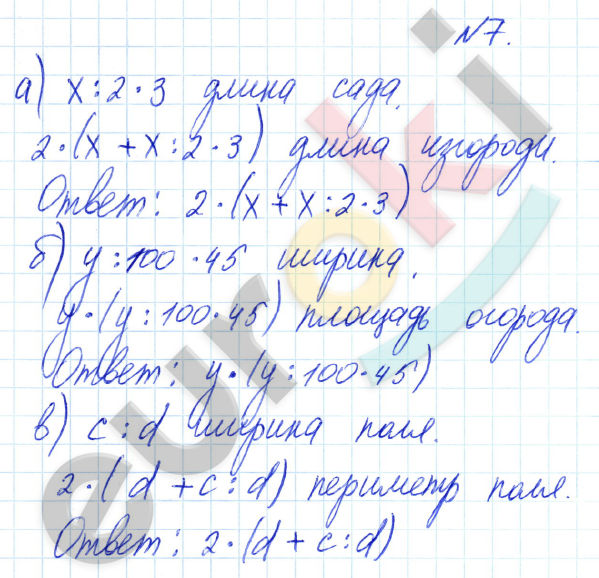 №7.
а) x:2·3 длина сада.
2·(x+x:2·3) длина изгороди.
Ответ: 2·(x+x:2·3)
б) y:100·45 ширина.
y·(y:100·45) площадь огорода.
Ответ: y·(y:100·45)
в) c:d ширина поля.
2·(d+c:d) периметр поля.
Ответ: 2·(d+c:d)
euroki